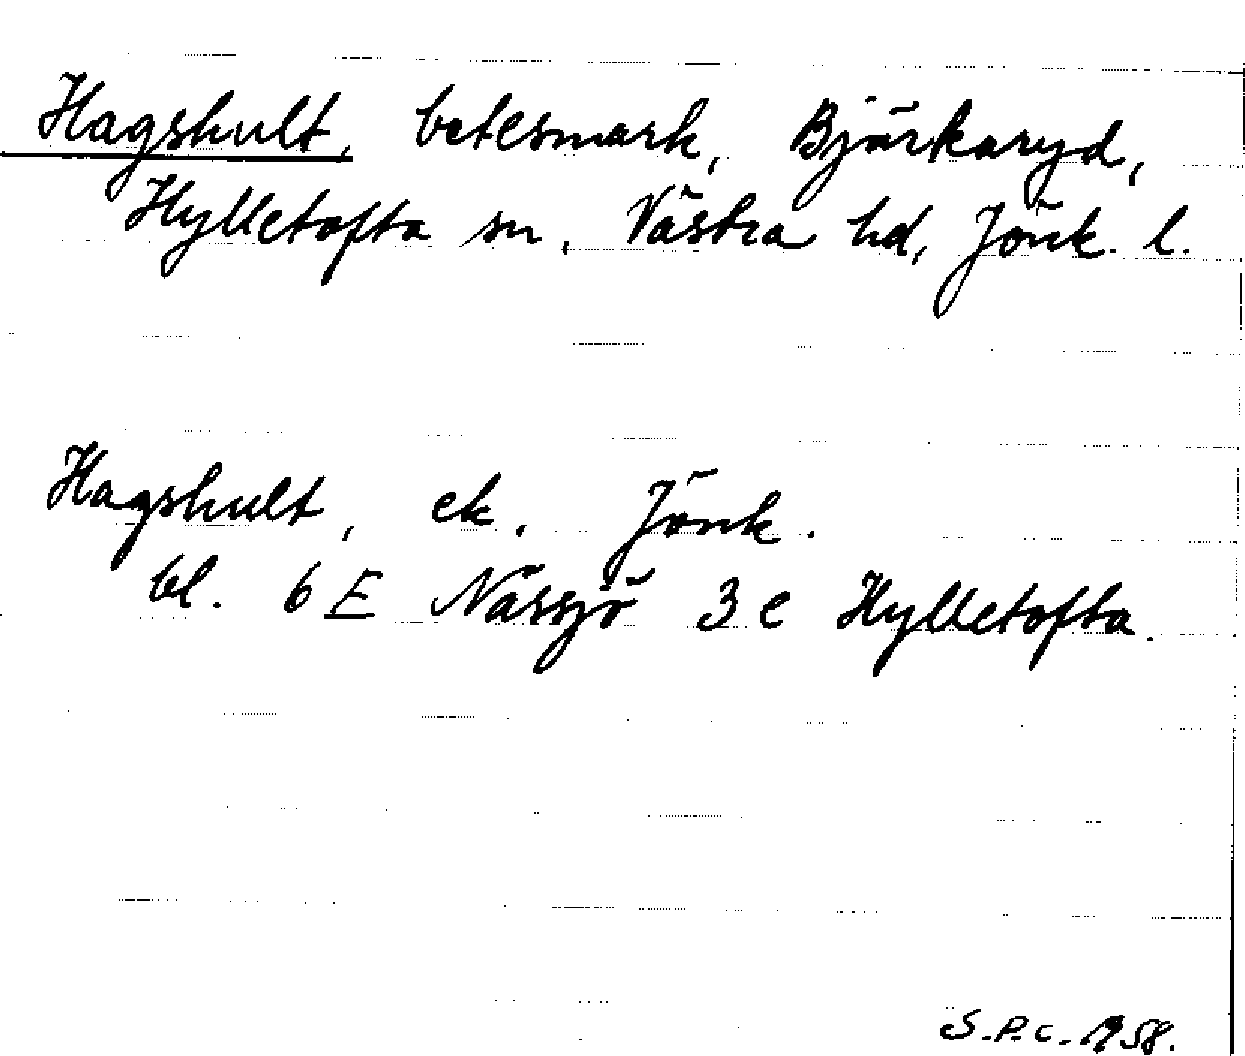 Hagshult, betesmark, Bjärkaryd,
Hylletofta sn, Västra hd, Jönk. l.
Hagshult, ek. Jönk.
bl. 6 E Nässjö 3 e Hylletofta.
S.P.C. 1958.